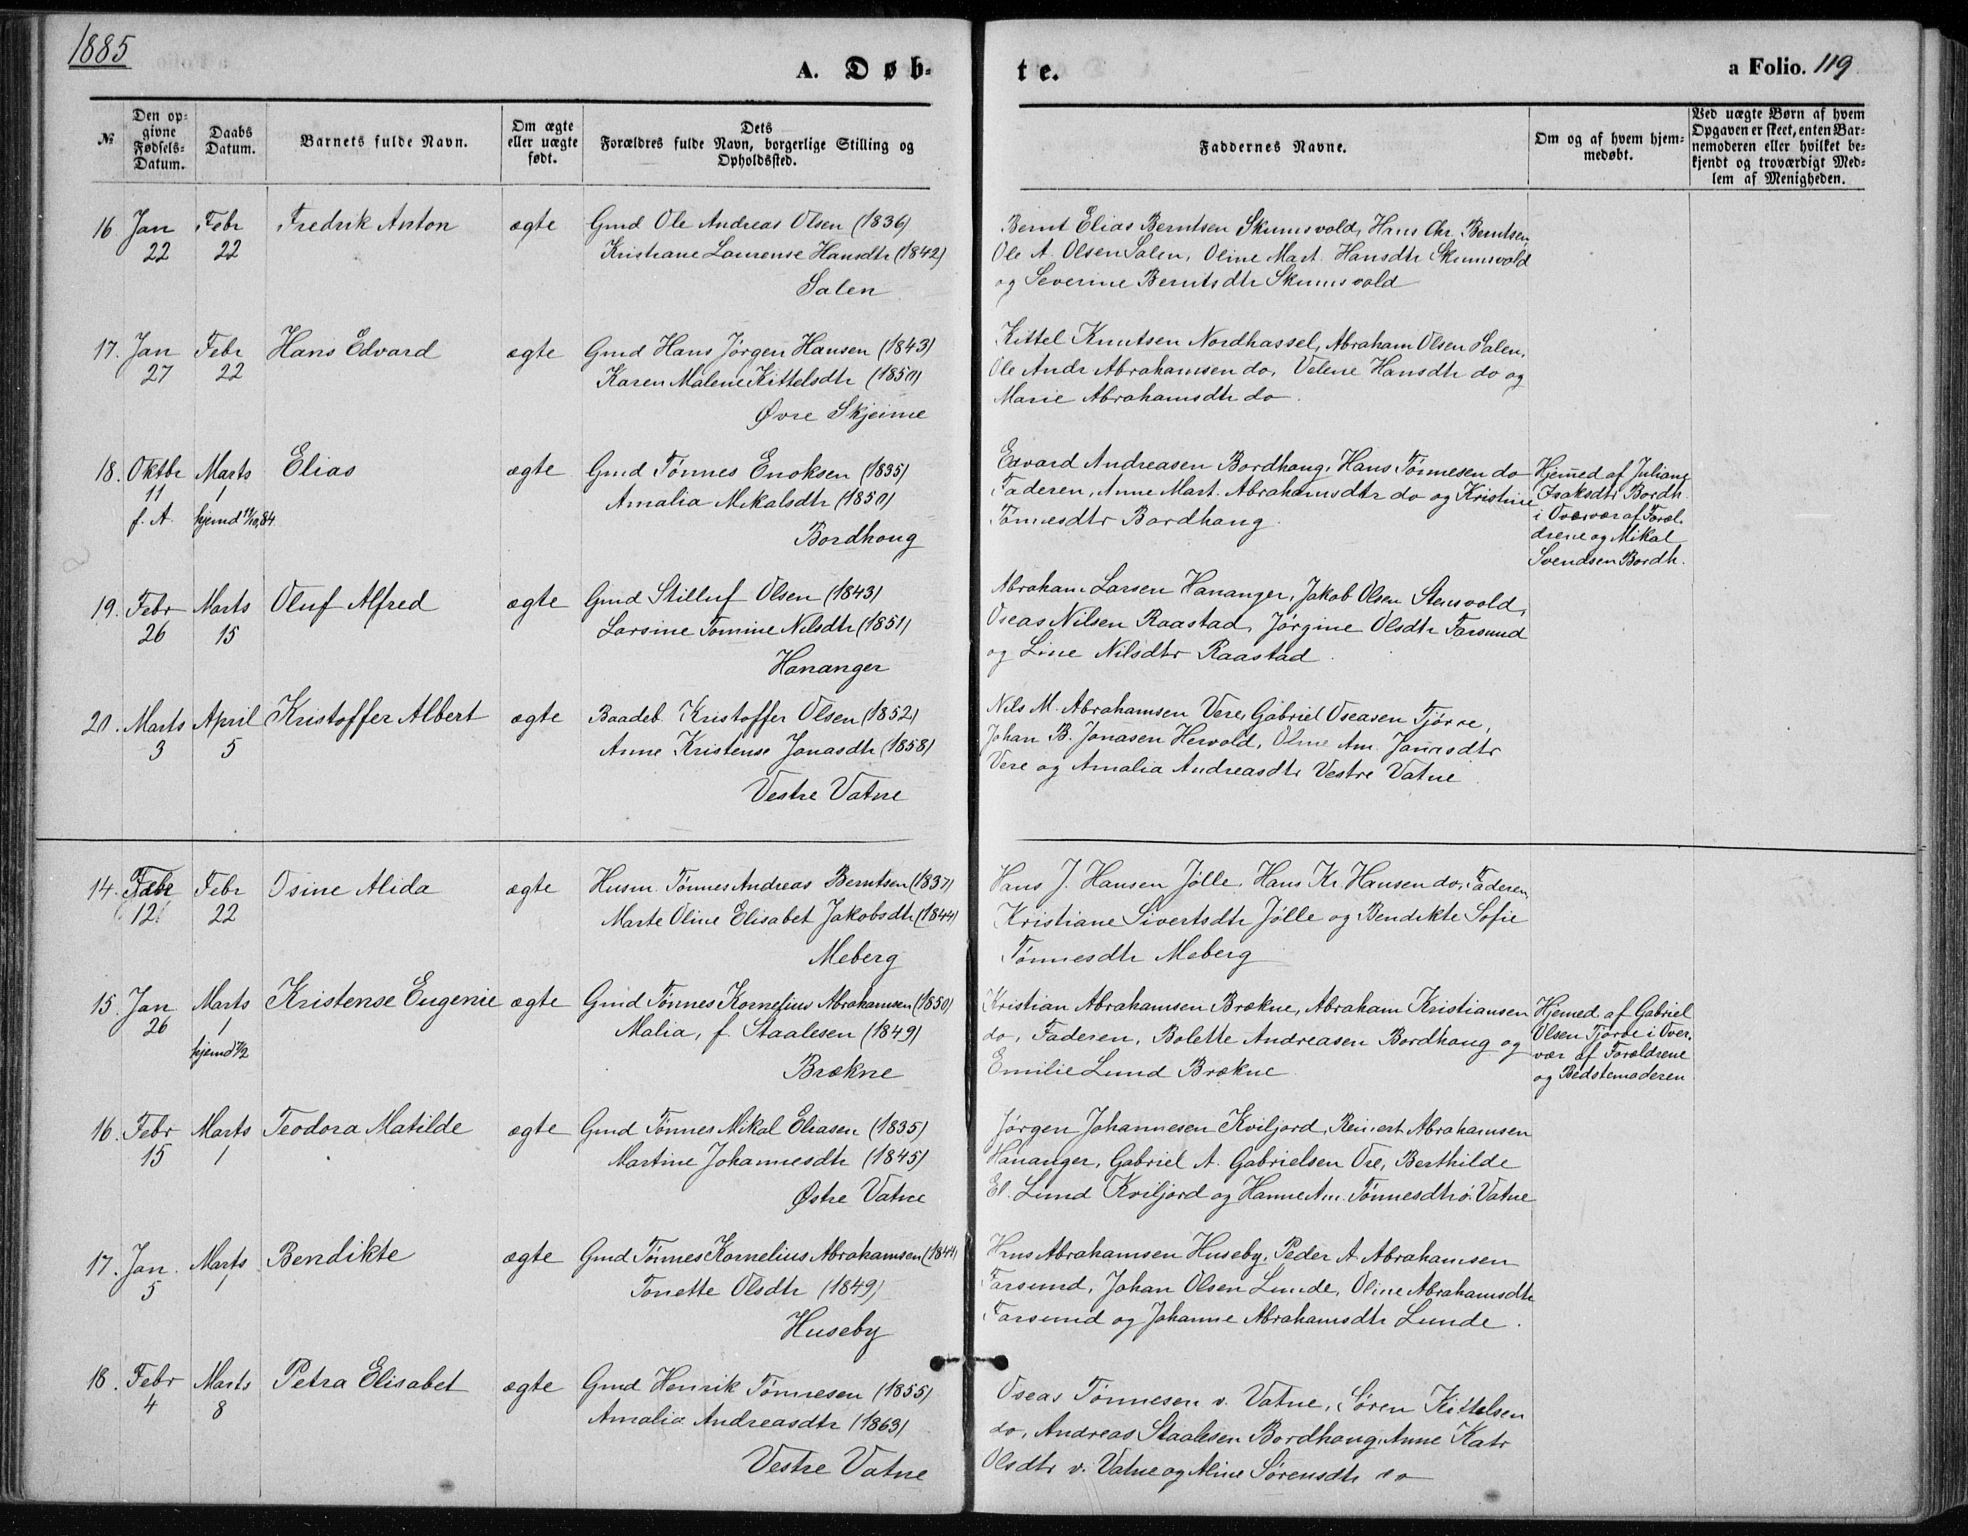 1885
A. Døb-
te.
a Folio. 119
№
Den op-
givne
Fødsels-
Datum.
Daabs
Datum.
Barnets fulde Navn.
Om ægte
eller uægte
født.
Dets
Forældres fulde Navn, borgerlige Stilling og
Opholdssted.
Faddernes Navne.
Om og af hvem hjem-
medøbt.
Ved uægte Børn af hvem
Opgaven er skeet, enten Bar-
nemoderen eller hvilket be-
kjendt og troværdigt Med-
lem af Menigheden.
16 Jan 22 Febr 22 Fredrik Anton ægte Gmd Ole Andreas Olsen (1836)
Kristiane Laurense Hansdtr (1842)
Salen
Bernt Elias Berntsen Skumsvold, Hans Chr. Berntsen,
Ole A. Olsen Salen, Oline Mart. Hansdtr Skumsvold
og Severine Berntsdtr Skumsvold
17. Jan 27 Febr 22 Hans Edvard ægte Gmd Hans Jørgen Hansen (1843)
Karen Malene Kittelsdtr (1850)
Øvre Skjeime
Kittel Knutsen Nordhassel, Abraham Olsen Salen,
Ole Andr Abrahamsen do, Velene Hansdtr do og
Marie Abrahamsdtr do.
18. Oktbr 11 f. A. Marts 1 hjemd 11/10, 84 Elias ægte Gmd Tønnes Enoksen (1835)
Amalia Mikalsdtr (1850)
Bordhoug
Edvard Andreasen Bordhoug, Hans Tønnesen do
Faderen, Anne Mart. Abrahamsdtr do og Kristine
Tønnesdtr Bordhaug.
Hjemmed af Juliane
Isaksdtr Bordh.
i Overvær af Foræl-
drene og Mikal
Svendsen Bordh.
19. Febr 26 Marts 15 Oluf Alfred ægte Gmd Stilluf Olsen (1843)
Larsine Tomine Nilsdtr (1851)
Hananger
Abraham Larsen Hananger, Jakob Olsen Stensvold,
Oseas Nilsen Raastad, Jørgine Olsdtr Farsund
og Line Nilsdtr Raastad.
20. Marts 3 April 5 Kristoffer Albert ægte Baadeb. Kristoffer Olsen (1852)
Anne Kristense Jonasdtr (1858)
Vestre Vatne
Nils M. Abrahamsen Vere, Gabriel Oseasen Tjørve,
Johan B. Jonasen Hervold, Oline Am. Jonasdtr
Vere og Amalia Andreasdtr Vestre Vatne
14. Febr 12 Febr 22 Tsine Alida ægte Husm. Tønnes Andreas Berntsen (1837)
Marte Oline Elisabet Jakobsdtr (1844)
Meberg
Hans J. Hansen Jølle, Hans Kr. Hansen do, Faderen,
Kristiane Sivertsdtr Jølle og Bendikte Sofie
Tønnesdtr Meberg
15. Jan 26 Marts 1 hjemd 1/2 Kristense Eugenie ægte Gmd Tønnes Kornelius Abrahamsen (1850)
Malia, f. Staalesen (1849)
Brækne
Kristian Abrahamsen Brækne, Abraham Kristiansen
do, Faderen, Bolette Andreasen Bordhaug og
Emilie Lund Brækne
Hjemmed af Gabriel
Olsen Tjørve i Over-
vær af Forældrene
og Bedstemoderen
16. Febr 15 Marts 1 Teodora Matilde ægte Gmd Tønnes Mikal Eliasen (1835)
Martine Johannesdtr (1845)
Østre Vatne
Jørgen Johannesen Kviljord, Reinert Abrahamsen
Hananger, Gabriel A. Gabrielsen Ore, Berthilde
El. Lund Kviljord og Hanne Am. Tønnesdtr ø. Vatne
17. Jan. 5 Marts 1 Bendikte ægte Gmd Tønnes Kornelius Abrahamsen (1844)
Tonette Olsdtr (1849)
Huseby
Hans Abrahamsen Huseby, Peder A. Abrahamsen
Farsund, Johan Olsen Lunde, Oline Abrahamsdtr
Farsund og Johanne Abrahamsdtr Lunde.
18. Febr 4 Marts 8 Petra Elisabet ægte Gmd Henrik Tønnesen (1855)
Amalia Andreasdtr (1863)
Vestre Vatne
Oseas Tønnesen v. Vatne, Søren Kittelsen
do, Andreas Staalesen Bordhaug, Anne Katr
Olsdtr v. Vatne og Aline Sørensdtr do